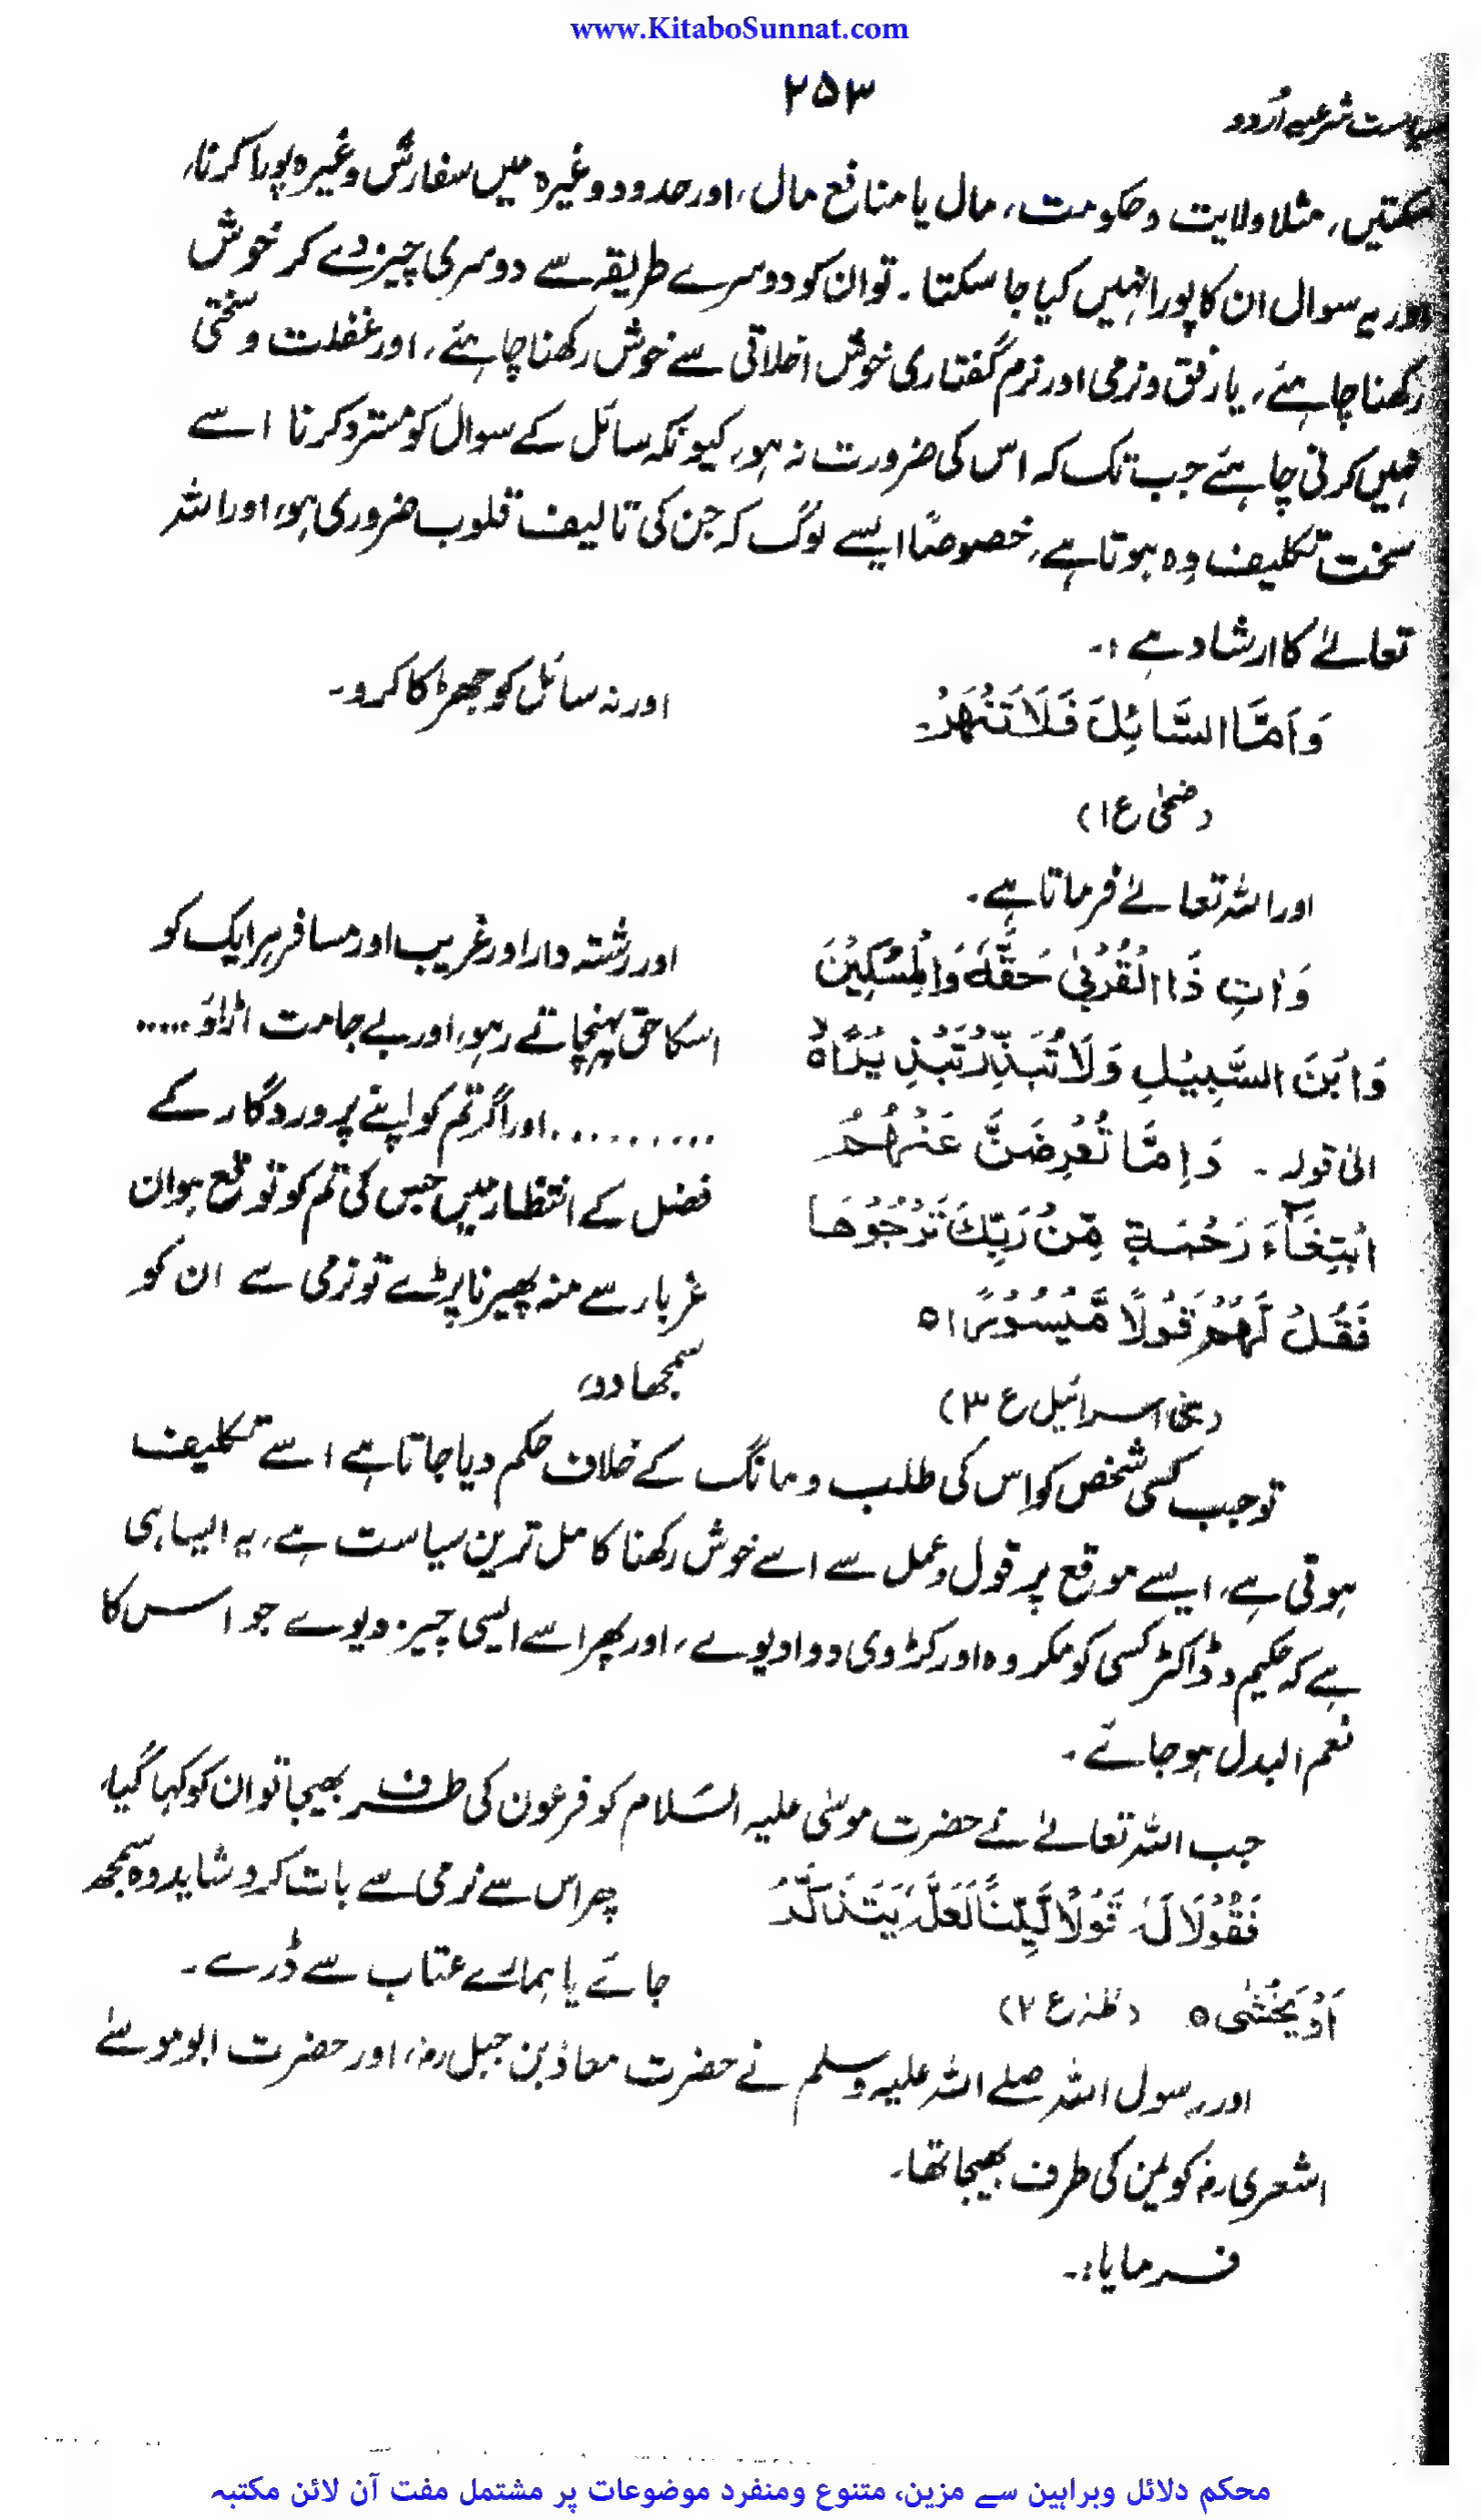 www.KitaboSunnat.com
۲۵۳
سیاست شرعیہ اُردو
سکتیں، مثلا ولایت و حکومت، مال یا منافع مال، اور حدود وغیرہ میں سفارش وغیرہ پورا کرنا،
اور یہ سوال ان کا پورا نہیں کیا جا سکتا۔ تو ان کو دوسرے طریقہ سے دوسری چیز دے کر خوش
رکھنا چاہئے، یا رفق و نرمی اور نرم گفتاری خوش اخلاقی سے خوش رکھنا چاہئے، اور غفلت و سختی
نہیں کرنی چاہئے جب تک کہ اس کی ضرورت نہ ہو، کیونکہ سائل کے سوال کو مسترد کرنا اسے
سخت تکلیف دہ ہوتا ہے، خصوصًا ایسے لوگ کہ جن کی تالیف قلوب ضروری ہو، اور اللہ
تعالےٰ کا ارشاد ہے :۔
وَاَمَّا السَّائِلَ فَلَا تَنْهَرْ۔
اور نہ سائل کو جھڑکا کرو۔
(ضحٰی ع ۱)
اور اللہ تعالےٰ فرماتا ہے۔
وَاٰتِ ذَا الْقُرْبٰی حَقَّهٗ وَالْمِسْكِیْنَ
اور رشتہ دار اور غریب اور مسافر ہر ایک کو
وَابْنَ السَّبِیْلِ وَلَا تُبَذِّرْ تَبْذِیْرًا ہ
اسکا حق پہنچاتے رہو، اور بے جا مت اڑاؤ .....
الیٰ قولہ ۔ وَاِمَّا تُعْرِضَنَّ عَنْهُمُ
.......... اور اگر تم کو اپنے پروردگار کے
ابْتِغَآءَ رَحْمَةٍ مِّنْ رَبِّكَ تَرْجُوْهَا
فضل کے انتظار میں جس کی تم کو توقع ہو ان
فَقُلْ لَّهُمْ قَوْلًا مَّیْسُوْرًا ہ
غربار سے منہ پھیرنا پڑے تو نرمی سے ان کو
(بنی اسرائیل ع ۳)
سمجھا دو،
تو جب کسی شخص کو اس کی طلب و مانگ کے خلاف حکم دیا جاتا ہے اسے تکلیف
ہوتی ہے، ایسے موقع پر قول و عمل سے اسے خوش رکھنا کامل ترین سیاست ہے، یہ ایسا ہی
ہے کہ حکیم و ڈاکٹر کسی کو مکروہ اور کڑوی دوا دیوے، اور پھر اسے ایسی چیز دیوے جو اس کا
نعم البدل ہو جائے۔
جب اللہ تعالےٰ نے حضرت موسٰی علیہ السّلام کو فرعون کی طرف بھیجا تو ان کو کہا گیا،
فَقُوْلَا لَهٗ قَوْلًا لَّیِّنًا لَّعَلَّهٗ یَتَذَكَّرُ
پھر اس سے نرمی سے بات کرو شاید وہ سمجھ
اَوْ یَخْشٰی ہ (طٰہٰ ع ۲)
جائے یا ہمارے عتاب سے ڈرے۔
اور رسول اللہ صلے اللہ علیہ وسلم نے حضرت معاذ بن جبل رض، اور حضرت ابو موسےٰ
اشعری رض کو یمن کی طرف بھیجا تھا۔
فرمایا :۔
محکم دلائل وبراہین سے مزین، متنوع ومنفرد موضوعات پر مشتمل مفت آن لائن مکتبہ